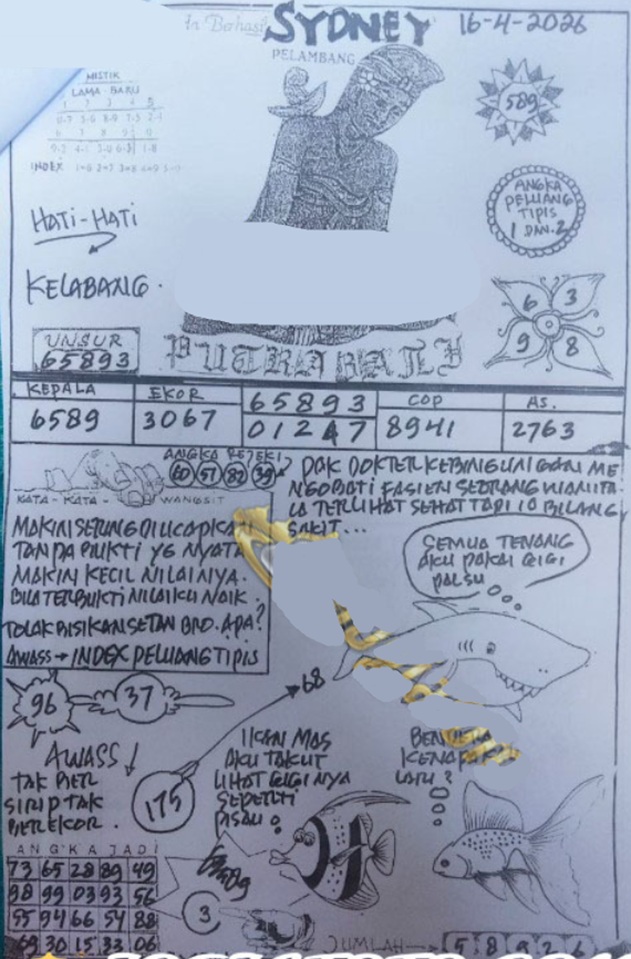 SYDNEY 16-4-2026
PELAMBANG
MISTIK
LAMA - BARU
INDEX
589
ANGKA
PELUANG
TIPIS
1 DAN.2
HATI-HATI
KELABANG.
6 3
9 8
UNSUR
65893
PUTRA BALI
KEPALA
6589
EKOR
3067
65893
01247
COP
8941
AS.
2763
ANGKA REJEKI
60 57 82 39
KATA - KATA - WANGSIT
PAK DOKTER KEBINGUNGAN ME
NGOBATI PASIEN SEORANG WANITA
IA TERLIHAT SEHAT TAPI IA BILANG
SAKIT...
MAKIN SERING DI UCAPKAN
TANPA BUKTI YG NYATA
MAKIN KECIL NILAINYA.
BILA TERBUKTI NILAIKU NAIK.
TOLAK BISIKAN SETAN BRO. APA?
AWASS → INDEX PELUANG TIPIS
SEMUA TENANG
AKU PAKAI GIGI
PALSU
68
96
37
AWASS
TAK BER
SIRIP TAK
BEREKOR.
175
IKAN MAS
AKU TAKUT
LIHAT GIGINYA
SEPERTI
PISAU
KENAPA
LARI?
ANGKA JADI
73 65 28 89 49
98 99 03 93 56
55 94 66 54 88
69 30 15 33 06
3
JUMLAH → 5 8 9 2 6